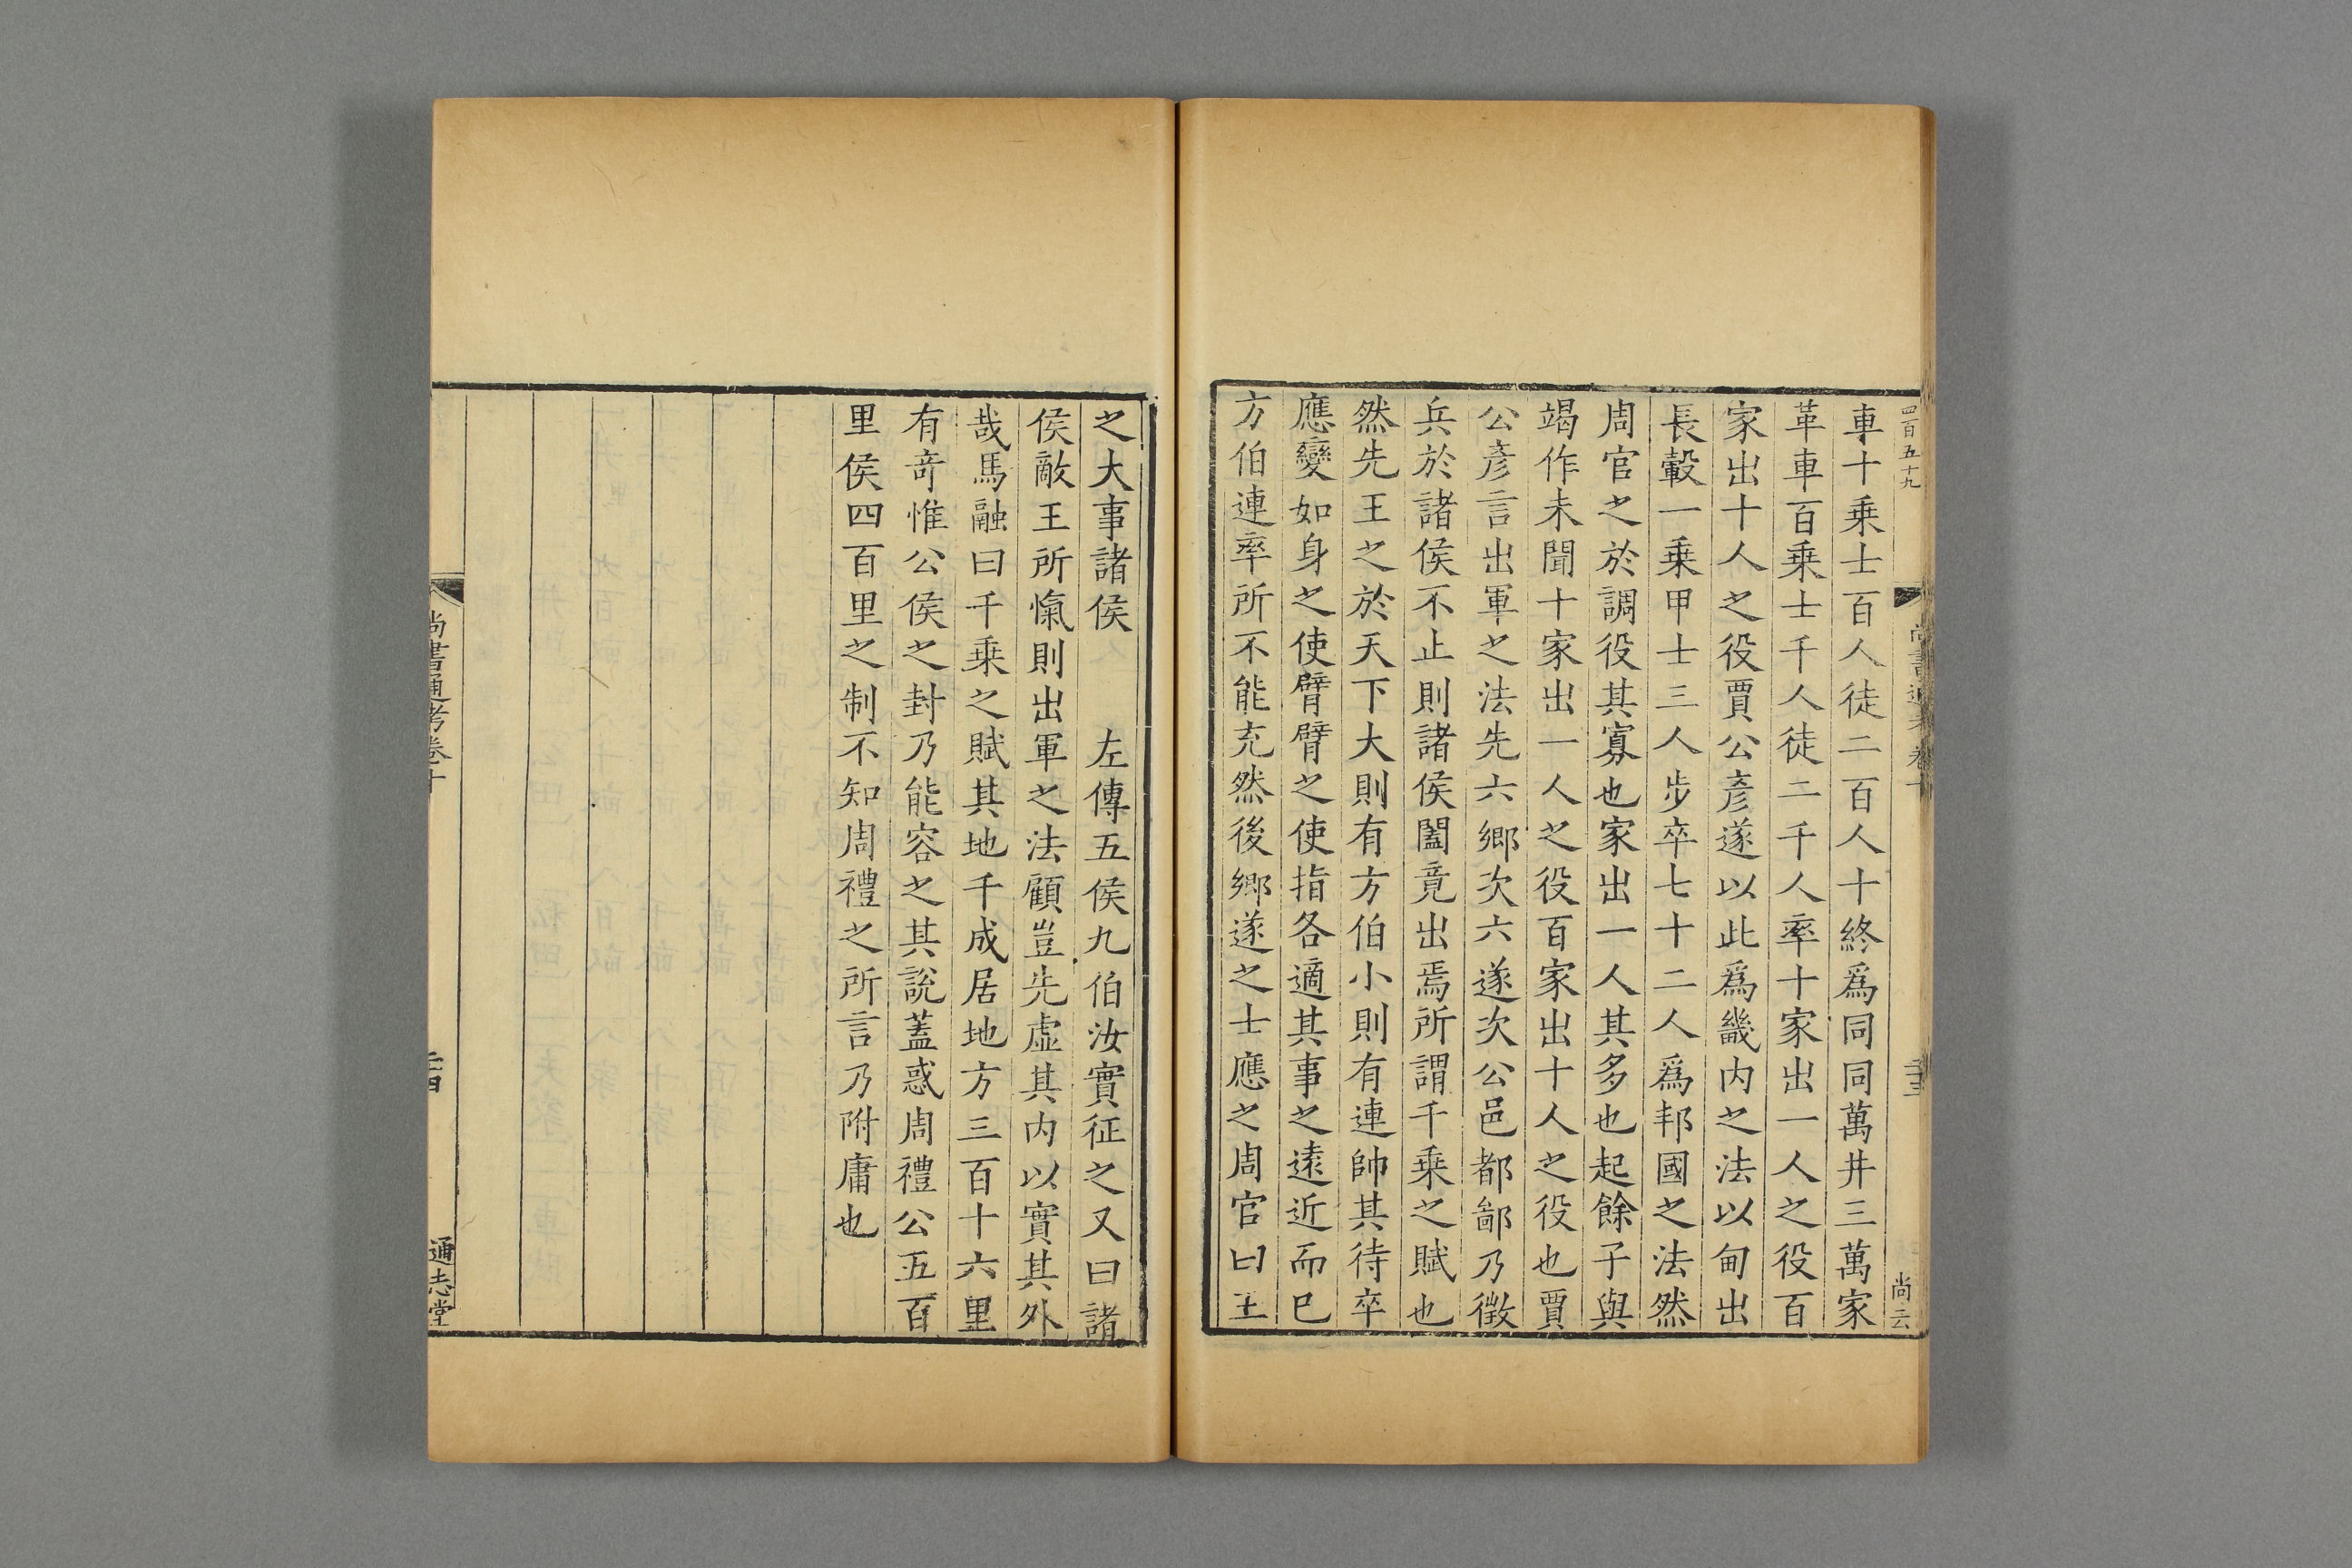 四百五十九
尚書通考卷十
二十三
尚云
車十乗士百人徒二百人十終爲同同萬井三萬家
革車百乗士千人徒二千人率十家出一人之役百
家出十人之役賈公彦遂以此爲畿内之法以甸出
長轂一乗甲士三人步卒七十二人爲邦國之法然
周官之於調役其寡也家出一人其多也起餘子與
竭作未聞十家出一人之役百家出十人之役也賈
公彦言出軍之法先六鄉次六遂次公邑都鄙乃徵
兵於諸侯不止則諸侯闔竟出焉所謂千乗之賦也
然先王之於天下大則有方伯小則有連帥其待卒
應變如身之使臂臂之使指各適其事之遠近而已
方伯連率所不能充然後鄉遂之士應之周官曰王
之大事諸侯　左傳五侯九伯汝實征之又曰諸
侯敵王所愾則出軍之法顧豈先虚其内以實其外
哉馬融曰千乗之賦其地千成居地方三百十六里
有奇惟公侯之封乃能容之其說蓋惑周禮公五百
里侯四百里之制不知周禮之所言乃附庸也
尚書通考卷十
二十四
通志堂